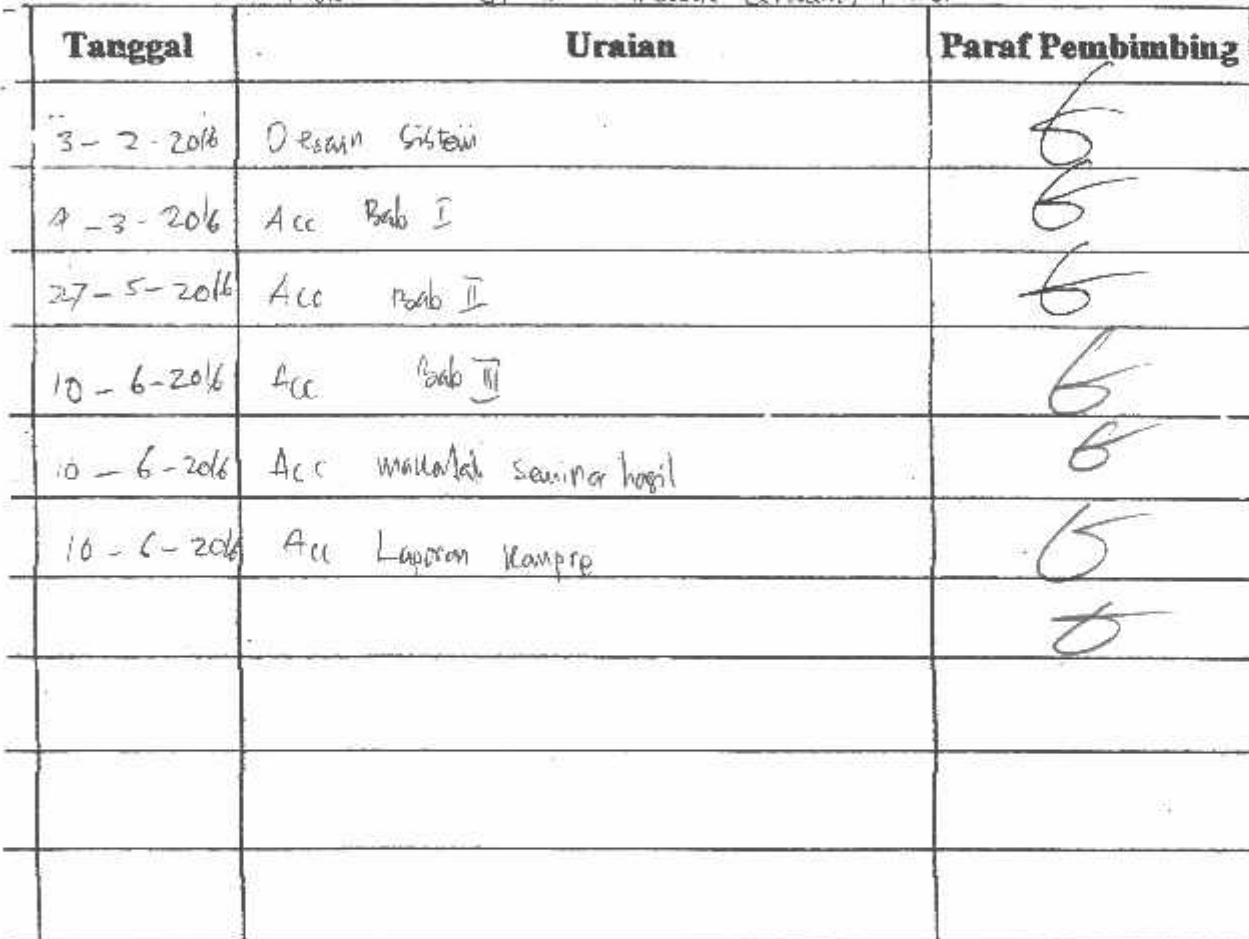 Tanggal Uraian Paraf Pembimbing
3 - 2 - 2016 Desain Sistem
4 - 3 - 2016 Acc Bab I
27 - 5 - 2016 Acc Bab II
10 - 6 - 2016 Acc Bab III
10 - 6 - 2016 Acc makalah seminar hasil
10 - 6 - 2016 Acc Laporan Kompre